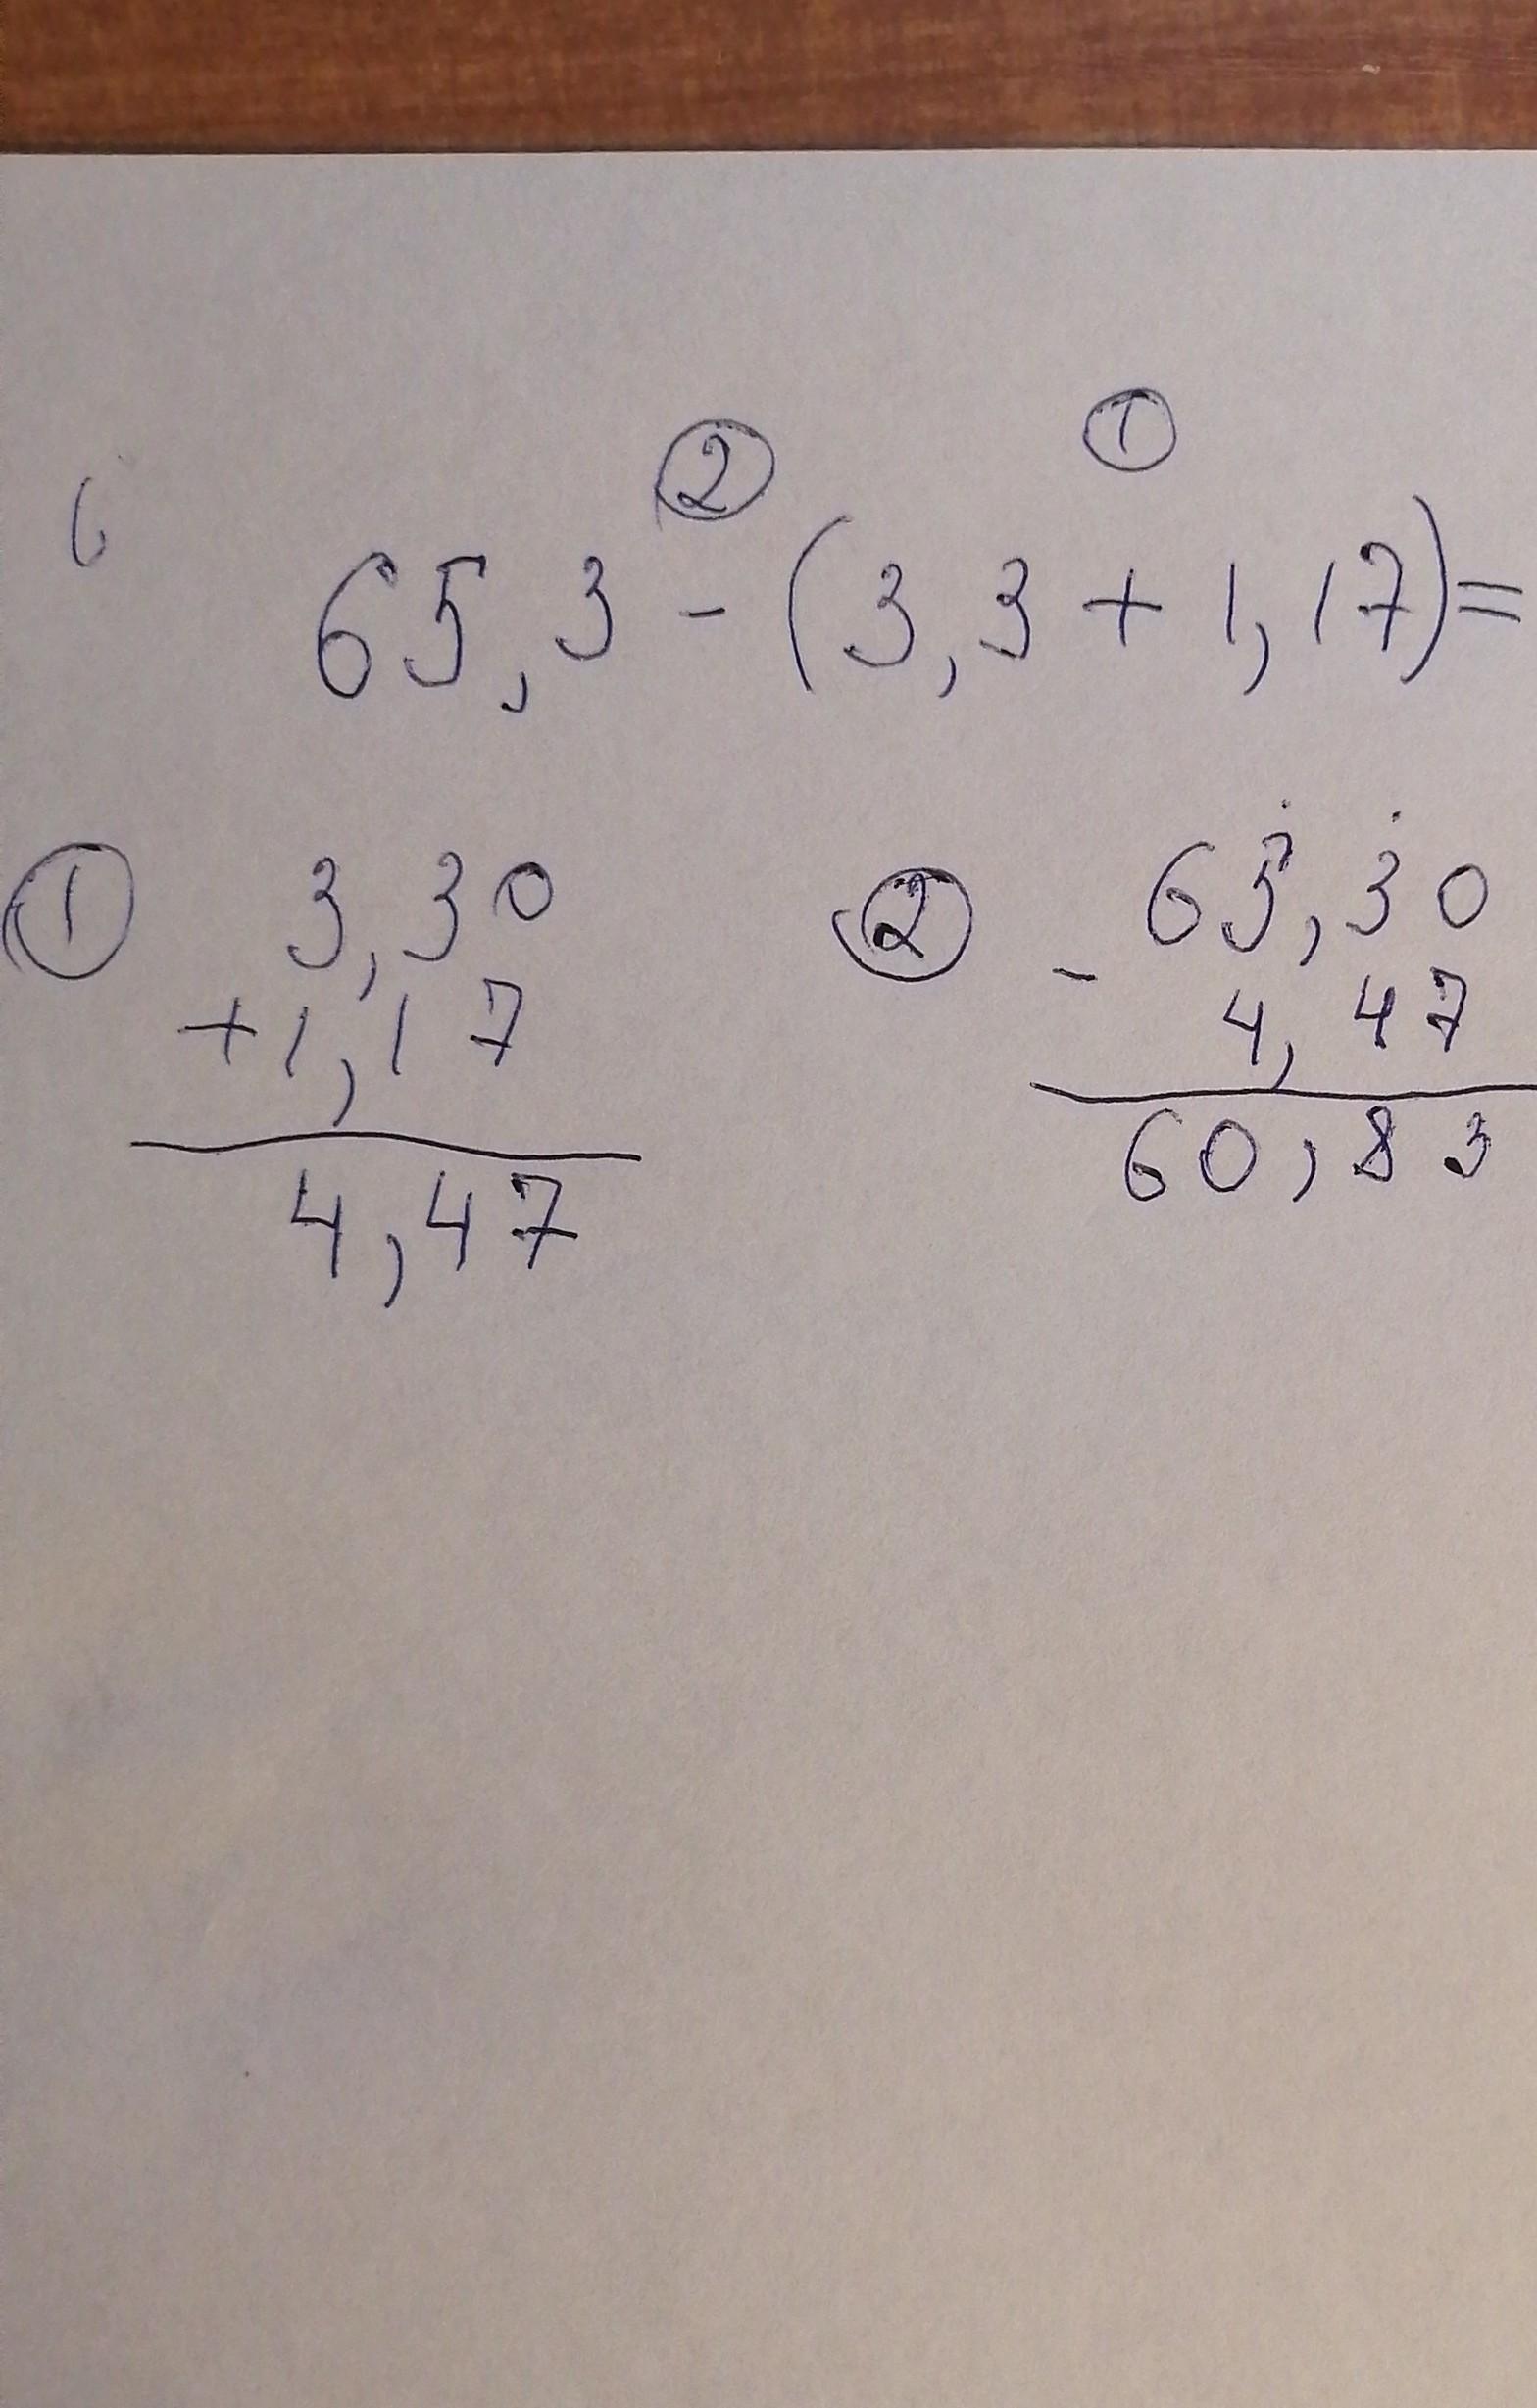 ② ①
65,3 - (3,3 + 1,17) =
① 3,30
+ 1,17
4,47
② 65,30
- 4,47
60,83